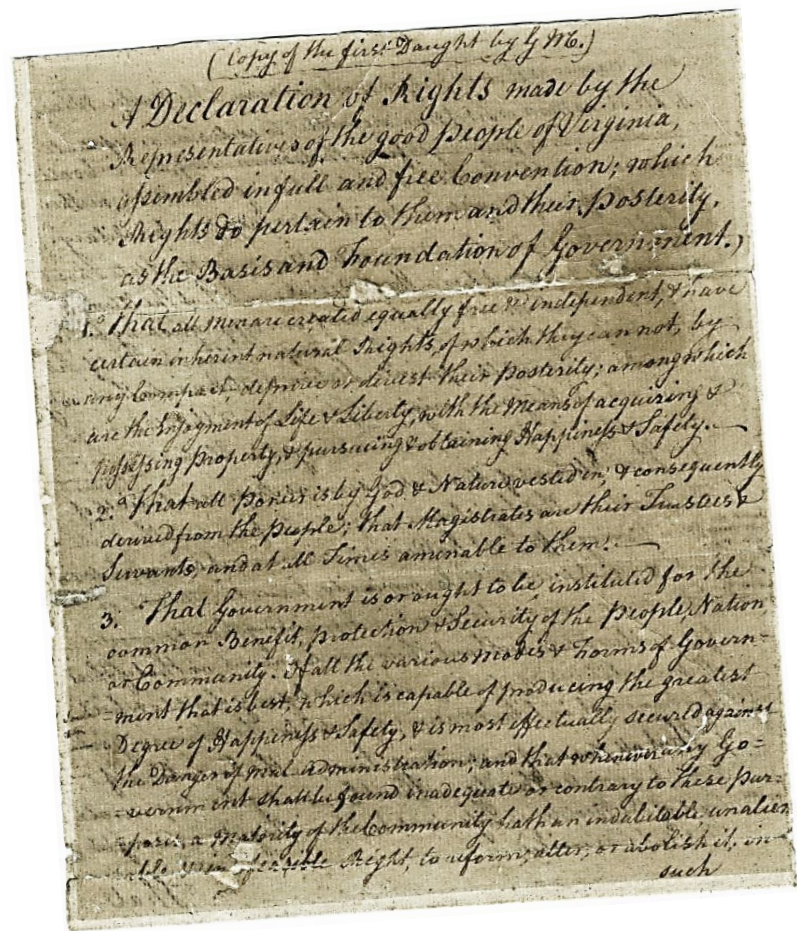 (Copy of the first Daught by G M.)
A Declaration of Rights made by the
Representatives of the good People of Virginia,
assembled in full and free Convention; which
Rights do pertain to them and their Posterity,
as the Basis and Foundation of Government.
1. That all men are created equally free & independent, & have
certain inherent natural Rights, of which they can not, by
any Compact, deprive or divest their Posterity; among which
are the Enjoyment of Life & Liberty, with the Means of acquiring &
possessing Property, & pursuing & obtaining Happiness & Safety.
2. That all Power is by God & Nature vested in, & consequently
derived from the People; that Magistrates are their Trustees &
Servants, and at all Times amenable to them.
3. That Government is or ought to be, instituted for the
common Benefit, Protection & Security of the People, Nation
or Community. Of all the various Modes & Forms of Govern=
=ment that is best, which is capable of producing the greatest
Degree of Happiness & Safety, & is most effectually secured against
the Danger of mal-administration; and that whenever any Go=
=vernment shall be found inadequate or contrary to these Pur=
=poses, a Majority of the Community hath an indubitable, unalien
Right, to reform, alter, or abolish it, in
such